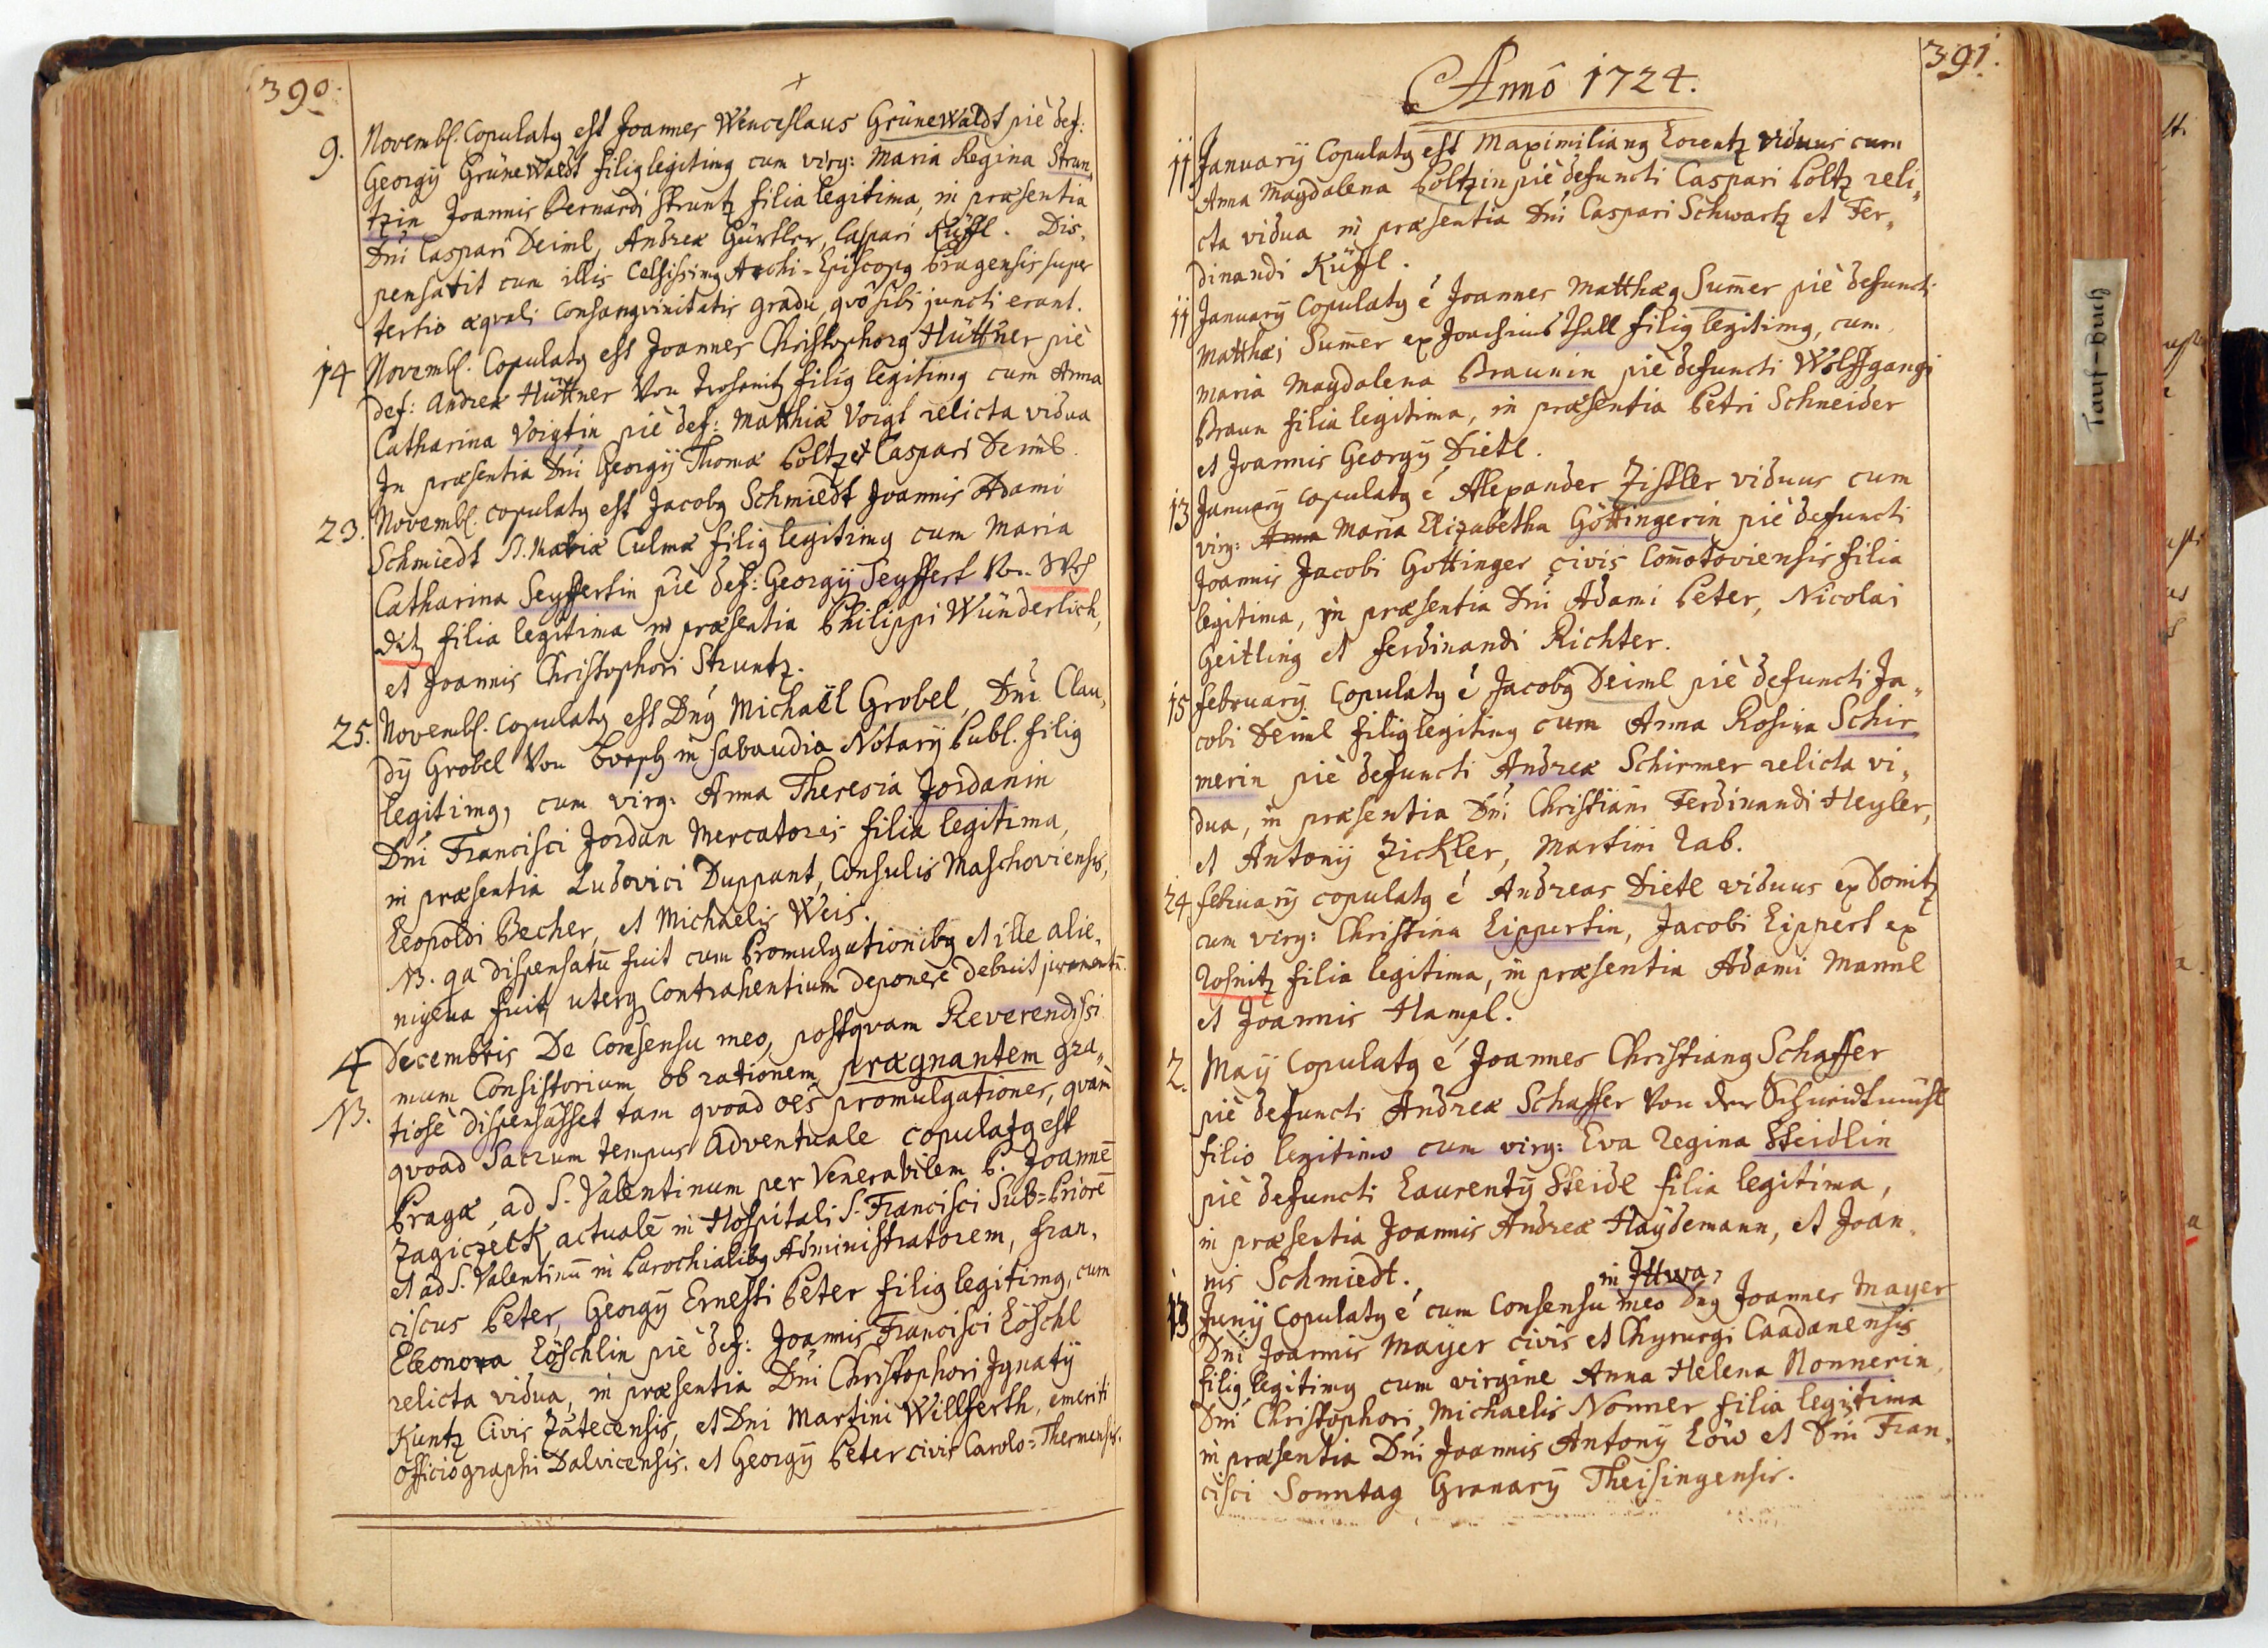 390.
9. Novembr. Copulatq est Joannes Wenceslaus Grünewaldt piè def:
Georgÿ Grünewaldt filiq legitimq cum virg: Maria Regina Strun,
tzin Joannis Bernardi Struntz filia legitima, in præsentia
Dnī Caspari Deiml, Andreæ Gürtler, Caspari Küffl. Dis,
pensavit cum illis Celsissimq Archi-Episcopq Pragensis super
tertio æquali consangvinitatis gradu, qvô sibi juncti erant.
14 Novembr. Copulatq est Joannes Christophorq Hüttner piè
def: Andreæ Hüttner Von filiq legitimq cum Anna
Catharina Voigtin piè def: Matthiæ Voigt relicta vidua
In præsentia Dnī Georgÿ Thomæ Poltz et Caspari Deiml.
23. Novembr. copulatq est Jacobq Schmiedt Joannis Adami
Schmiedt S. Mariæ Culmæ filiq legitimq cum Maria
Catharina Seyffertin piè def: Georgÿ Seyffert Von
ditz filia legitima in præsentia Philippi Wünderlich,
et Joannis Christophori Struntz.
25. Novembr. copulatq est Dnq Michaël Grobel, Dnī Clau,
dÿ Grobel Von in Sabaudia Notarÿ Publ. filiq
legitimq, cum virg: Anna Theresia Jordanin
Dnī Francisci Jordan Mercatoris filia legitima,
in præsentia Ludovici Duppant, Consulis Maschoviensis,
Leopoldi Becher, et Michaelis Weis.
NB. qa dispensatū fuit cum Promulgationibq et ille alie,
nigena fuit, uterq Contrahentium deponere debuit juramentū.
4 Decembris De Consensu meo, postqvam Reverendissi
NB. mum Consistorium, ob rationem prægnantem gra,
tiosè dispensâsset tam qvoad oēs promulgationes, qvam
qvoad Sacrum tempus Adventuale copulatq est
Pragæ, ad S. Valentinum per Venerabilem P. Joannē
Zagiczeck, actualē in Hospitali S. Francisci Sub=Priorē
et ad S. Valentinū in Parochialibq Administratorem, Fran,
ciscus Peter, Georgÿ Ernesti Peter filiq legitimq, cum
Eleonora Löschlin piè def: Joannis Francisci Löschl
relicta vidua, in præsentia Dnī Christophori Ignatÿ
Kuntz Civis Zatecensis, et Dni Martini Willferth, emeriti
Officiographi Dalvicensis. et Georgÿ Peter civis Carolo=Thermensis.
391.
Annô 1724.
11 Januarÿ Copulatq est Maximilianq Lorentz viduus cum
Anna Magdalena Poltzin piè defuncti Caspari Poltz reli,
cta vidua in præsentia Dnī Caspari Schwartz et Fer,
dinandi Küffl.
11 Januarÿ Copulatq é Joannes Matthæq Sum̄er piè defuncti
Matthæi Sum̄er ex Joachims Thall filiq legitimq, cum
Maria Magdalena Braunin piè defuncti Wolffgangi
Braun filia legitima, in præsentia Petri Schneider
et Joannis Georgÿ Dietl.
13 Januarÿ copulatq é Alexander Fistler viduus cum
virg: Anna Maria Elizabetha Göttingerin piè defuncti
Joannis Jacobi Gottinger civis Com̄otoviensis filia
legitima, in præsentia Dnī Adami Peter, Nicolai
Geitling et Ferdinandi Richter.
15 februarÿ Copulatq é Jacobq Deiml piè defuncti Ja,
cobi Deiml filiq legitimq cum Anna Rosina Schir,
merin piè defuncti Andreæ Schirmer relicta vi,
dua, in præsentia Dnī Christiani Ferdinandi Heyler,
et Antonÿ Zickler, Martini Rab.
24 februarÿ copulatq é Andreas Dietl viduus ex Donitz
cum virg: Christina Lippertin, Jacobi Lippert ex
Rosnitz filia legitima, in præsentia Adami Mannl
et Joannis Hampl.
2. Maÿ Copulatq é Joannes Christianq Schaffer
piè defuncti Andreæ Schaffer Von der Schneidtmühl
filio legitimo cum virg: Eva Regina Steidlin
piè defuncti Laurentÿ Steidl filia legitima,
in præsentia Joannis Andreæ Haÿdemann, et Joan,
nis Schmiedt.
in Illwa,
13 Junÿ Copulatq é cum Consensu meo Dnq Joannes Mayer
Dnī Joannis Mayer civis et Chyrurgi Caadanensis
filiq legitimq cum virgine Anna Helena Nonnerin,
Dnī Christophori Michaelis Nonner filia legitima
in præsentia Dnī Joannis Antonÿ Löw et Dnī Fran,
cisci Sonntag Granarÿ Theisingensis.
Tauf-Buch